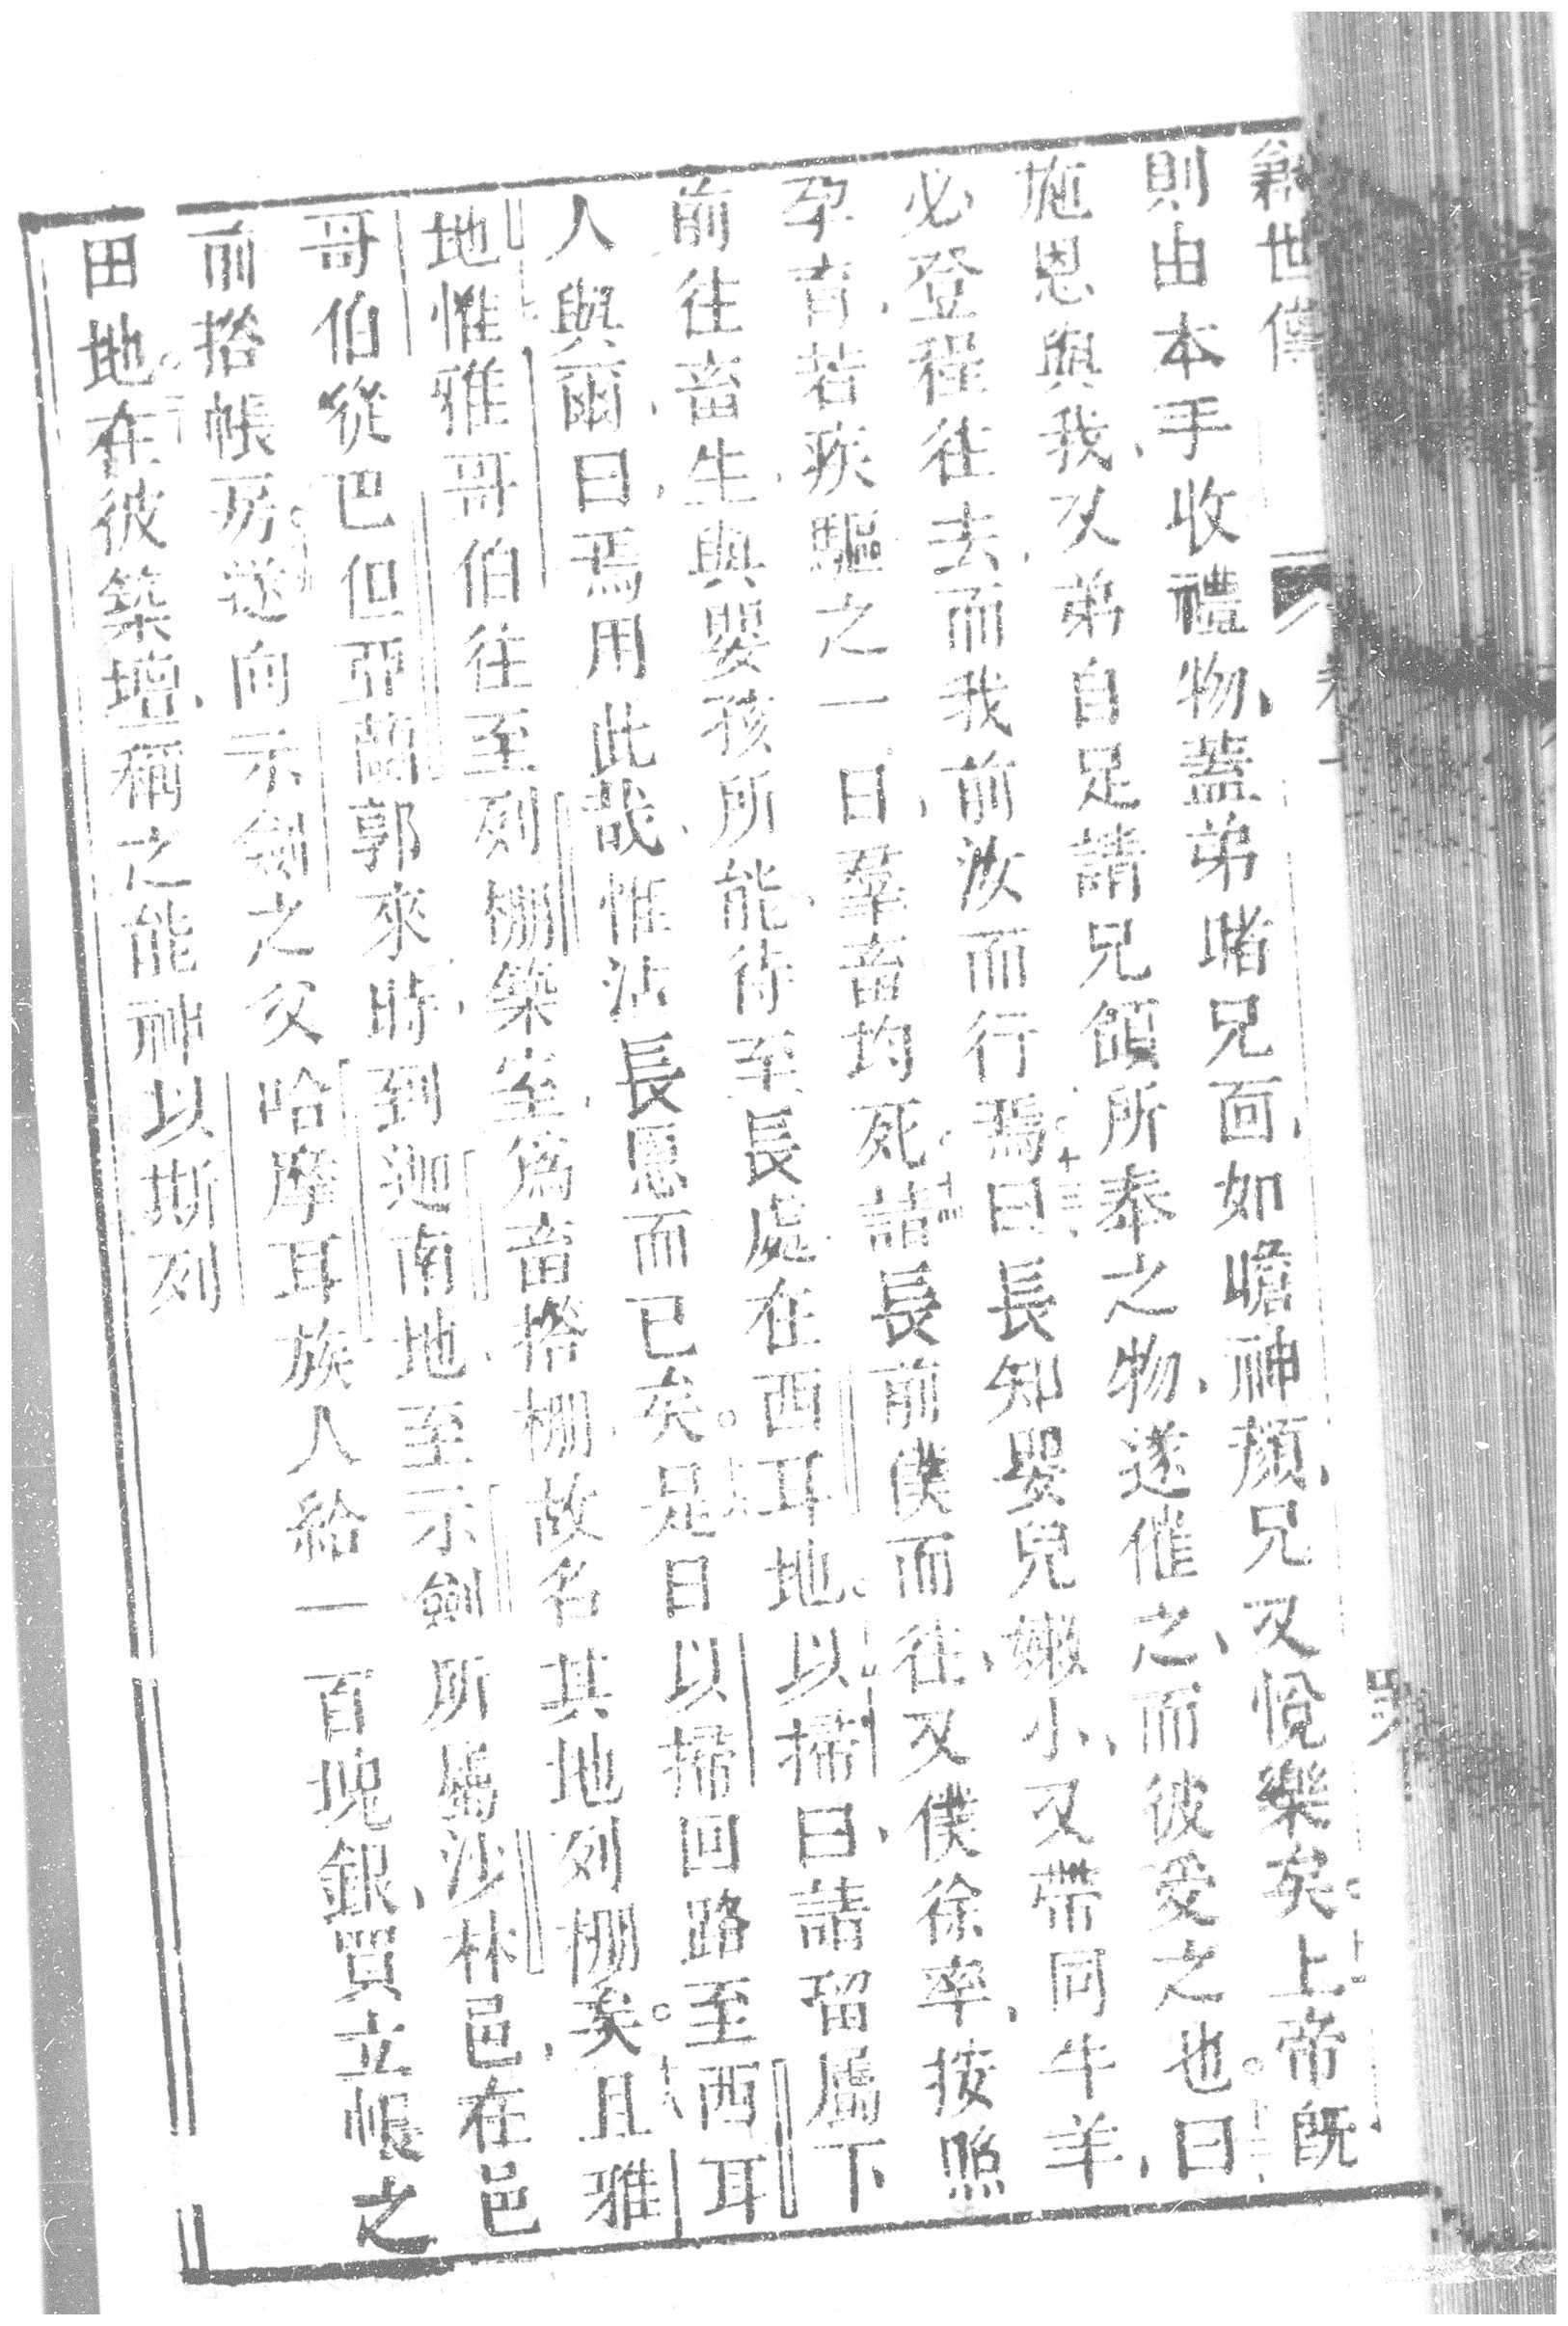 創世傳
則由本手收禮物、蓋弟睹兄面、如瞻神顏、兄又悅樂矣。上帝既
施恩與我、又弟自足請兄領所奉之物、遂催之、而彼受之也。曰、
必登程往去、而我前汝而行焉。曰長知嬰兒嫩小、又帶同牛羊、
孕育、若疾驅之一日、羣畜均死。請長前僕而往、又僕徐率、按照
前往畜生與嬰孩所能、待至長處在西耳地。以掃曰、請留屬下
人與爾、曰焉用此哉、惟沾長恩而已矣。是日以掃回路至西耳
地惟雅哥伯往至列棚築室、爲畜搭棚、故名其地列棚矣。且雅
哥伯從巴但亞蘭郭來時、到迦南地、至示劍所屬沙林邑、在邑
前搭帳房。遂向示劍之父哈摩耳族人給一百塊銀、買立帳之
田地。在彼築壇、稱之能神以斯列